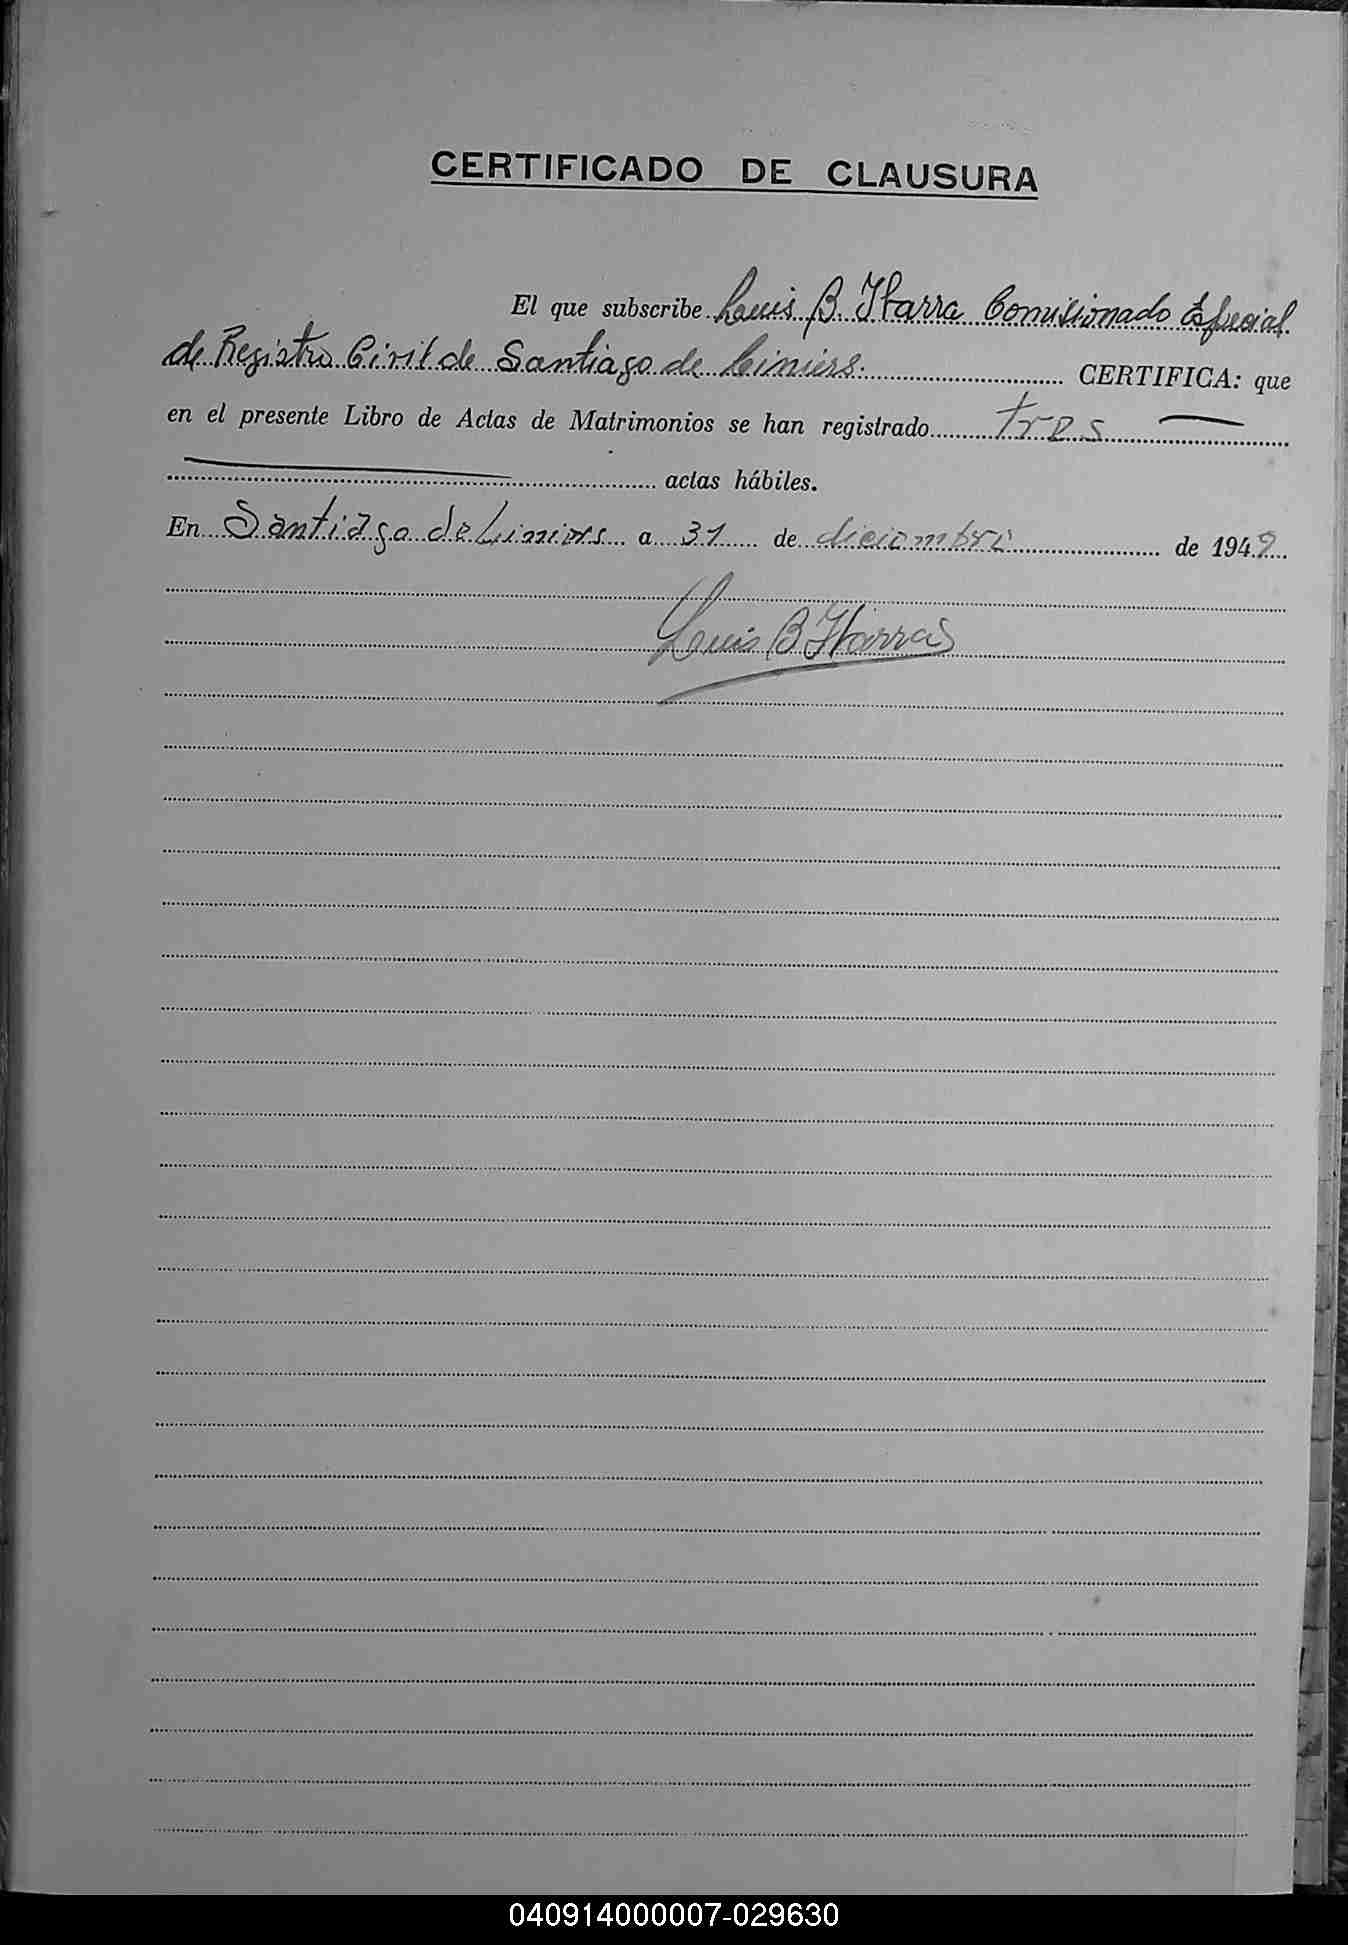 CERTIFICADO DE CLAUSURA
El que subscribe Luis B. Ibarra Comisionado Especial
de Registro Civil de Santiago de Liniers. CERTIFICA: que
en el presente Libro de Actas de Matrimonios se han registrado tres
actas hábiles.
En Santiago de Liniers a 31 de diciembre de 1949
Luis B Ibarra
040914000007-029630